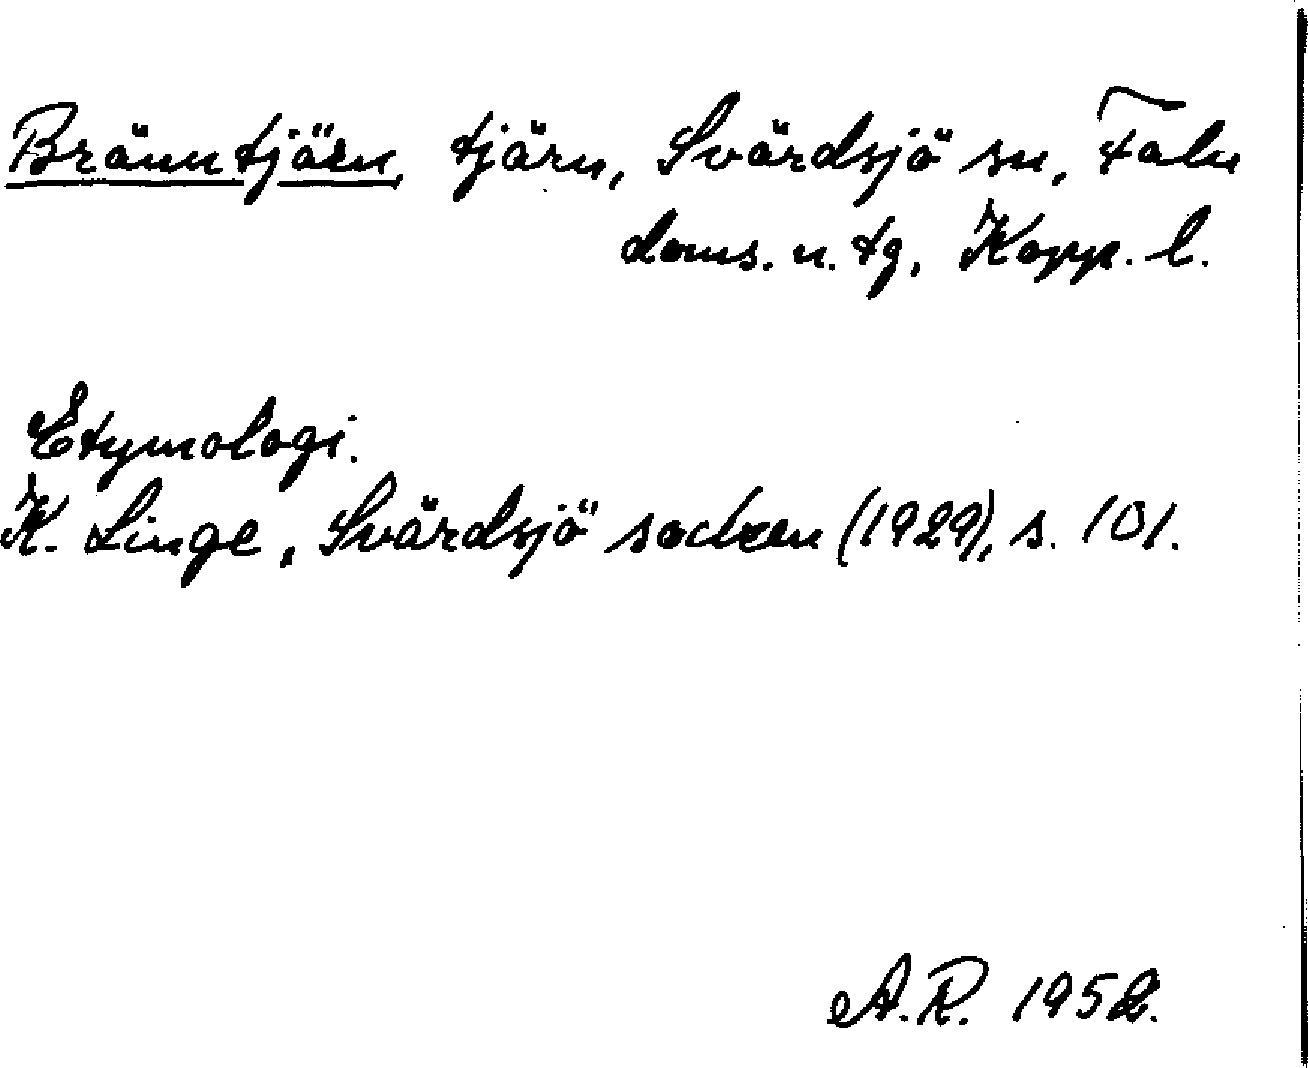 Bränntjärn, tjärn, Svärdsjö sn, Falu
doms. u. tg, Kopp. l.
Etymologi.
K. Linge, Svärdsjö socken (1929), s. 101.
A.R. 1952.